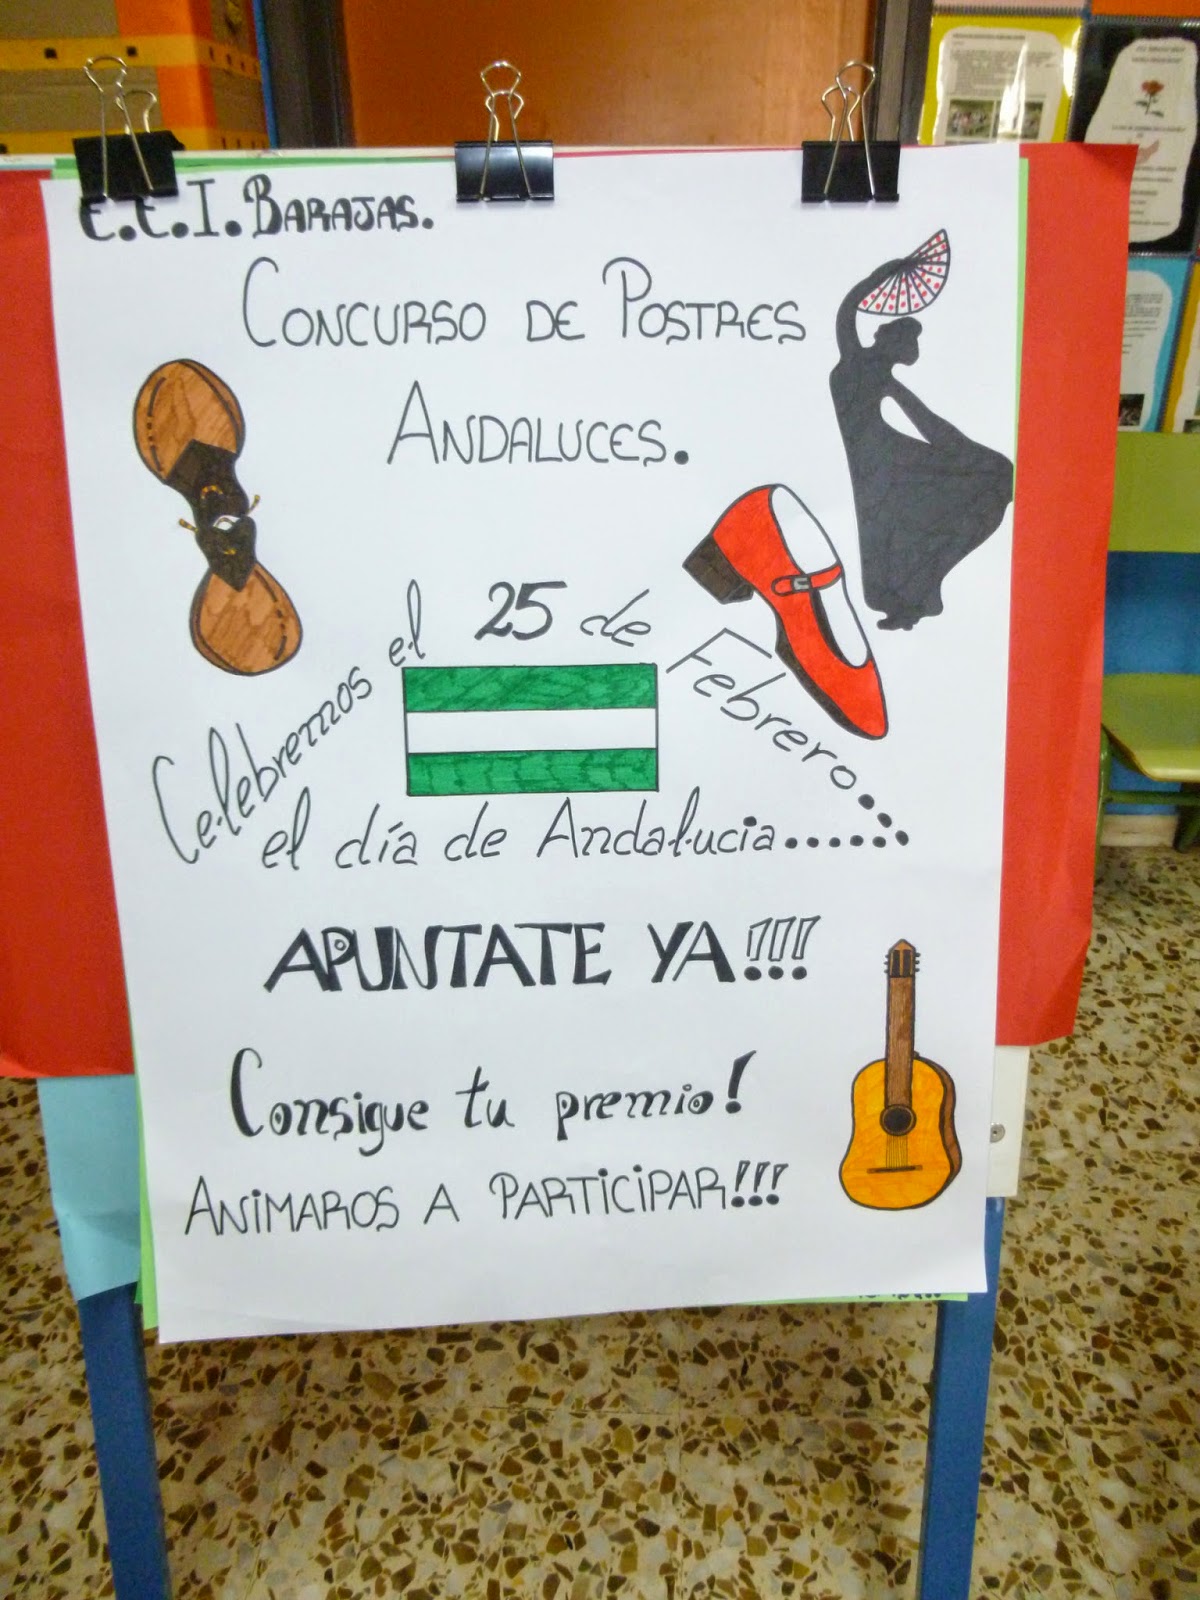 E.E.I. BARAJAS.
CONCURSO DE POSTRES
ANDALUCES.
Celebremos el 25 de Febrero...
el día de Andalucia......
APUNTATE YA!!!
Consigue tu premio!
ANIMAROS A PARTICIPAR!!!